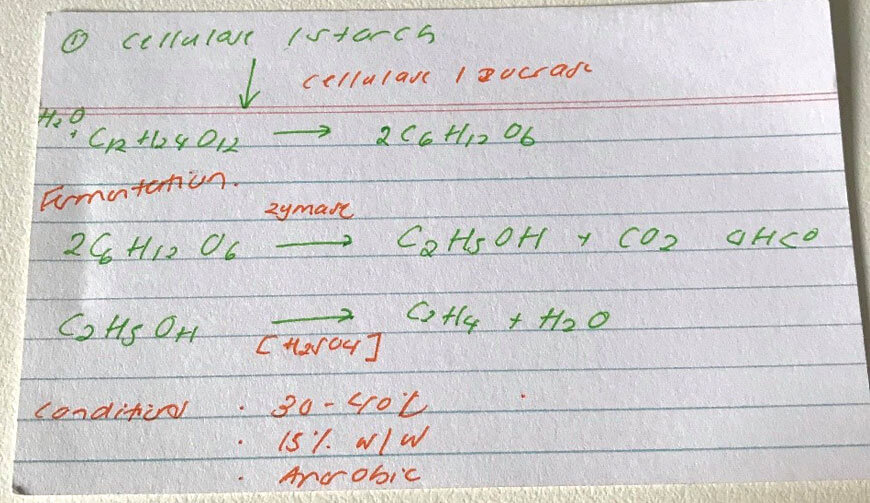 ① cellulase / starch
↓ cellulase / zucrase
H2O + C12H24O12 → 2C6H12O6
Fermentation.
zymase
2C6H12O6 → C2H5OH + CO2 ΔHCO
C2H5OH → C2H4 + H2O
[H2SO4]
Conditions · 30-40°C
· 15% w/w
· Anerobic